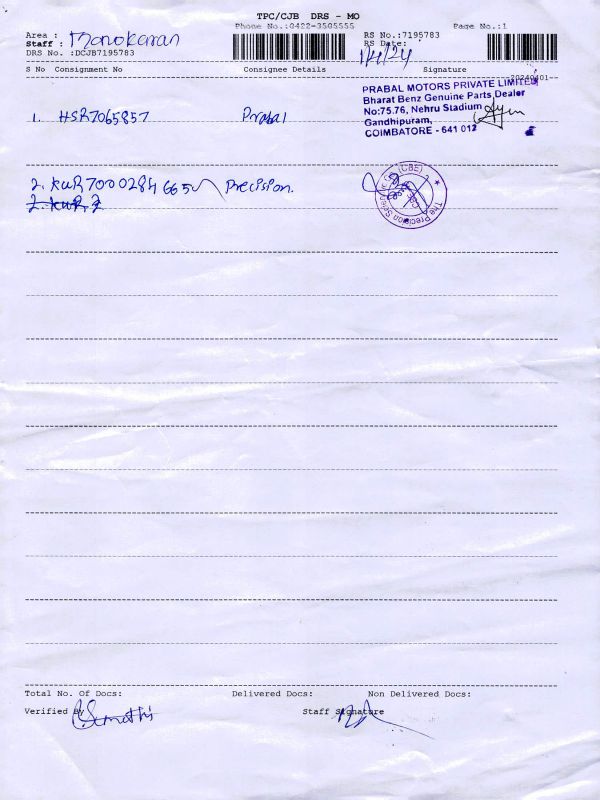 TPC/CJB DRS - MO
Phone No.:0422-3505555 Page No.:1
Area : Manokaran RS No.:7195783
Staff : RS Date: 1/4/24
DRS No. :DCJB7195783
S No Consignment No Consignee Details Signature
--20240401--
PRABAL MOTORS PRIVATE LIMITED
Bharat Benz Genuine Parts Dealer
No:75.76, Nehru Stadium
Gandhipuram,
COIMBATORE - 641 012
1. HSR7065857 Prabal
2. KUR7000284665 Precision.
2. KUR 7
The Precision Scientific Co (CBE)
Total No. Of Docs: Delivered Docs: Non Delivered Docs:
Verified By Staff Signature